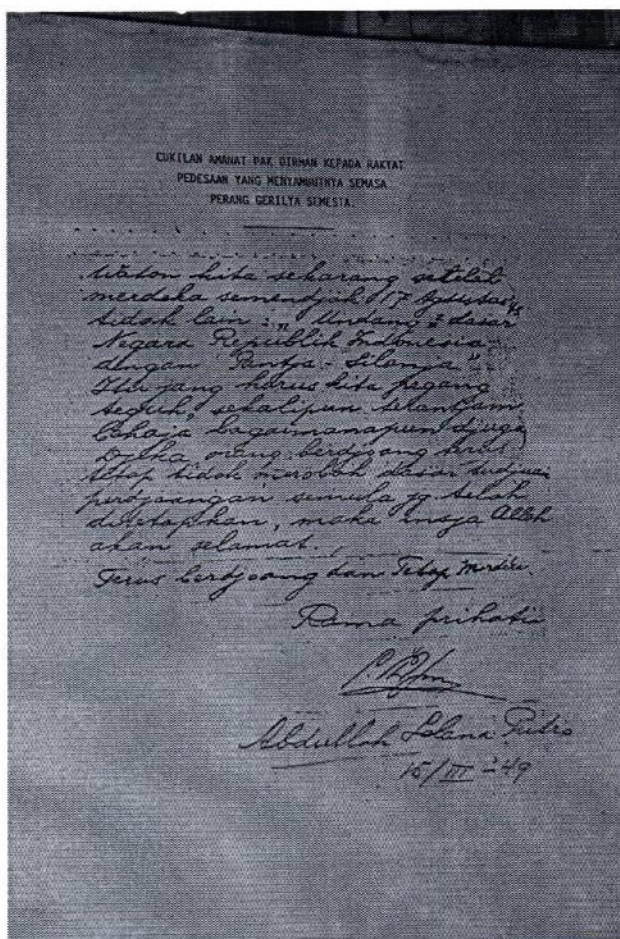 CUKILAN AMANAT PAK DIRMAN KEPADA RAKYAT
PEDESAAN YANG MENYAMBUTNYA SEMASA
PERANG GERILYA SEMESTA.
Waton kita sekarang setelah
merdeka semendjak 17 Agustus '45
tidak lain : „ Undang² dasar
Negara Republik Indonesia
dengan Pantja - Silanja "
Itu jang harus kita pegang
teguh, sekalipun terantjam
bahaja bagaimanapun djuga
Djika orang berdjoang terus
tetap tidak merobah dasar tudjuan
perdjoangan semula jg. telah
ditetapkan, maka insja Alloh
akan selamat.
Terus berdjoang dan Tetap Merdeka.
Rama prihatin
Abdulloh Lelana Putra
15/III - 49